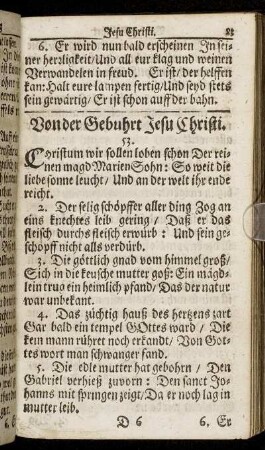 Jesu Christi.
6. Er wird nun bald erscheinen In sei-
ner herꝛligkeit/Und all eur klag und weinen
Verwandelen in freud. Er ist/ der helffen
kan: Halt eure lampen fertig/Und seyd stets
sein gewärtig/ Er ist schon auff der bahn.
Von der Gebuhrt Jesu Christi.
53.
Christum wir sollen loben schon Der rei-
nen magd Marien Sohn: So weit die
liebe sonne leucht/ Und an der welt ihr ende
reicht.
2. Der selig schöpffer aller ding Zog an
eins knechtes leib gering/ Daß er das
fleisch durchs fleisch erwürb: Und sein ge-
schöpff nicht alls verdürb.
3. Die göttlich gnad vom himmel groß/
Sich in die keusche mutter goß: Ein mägd-
lein trug ein heimlich pfand/ Das der natur
war unbekant.
4. Das züchtig hauß des hertzens zart
Gar bald ein tempel GOttes ward/ Die
kein mann rühret noch erkandt/ Von Got-
tes wort man schwanger fand.
5. Die edle mutter hat gebohrn/ Den
Gabriel verhieß zuvorn: Den sanct Jo-
hanns mit springen zeigt/Da er noch lag in
mutter leib.
D 6
6. Er